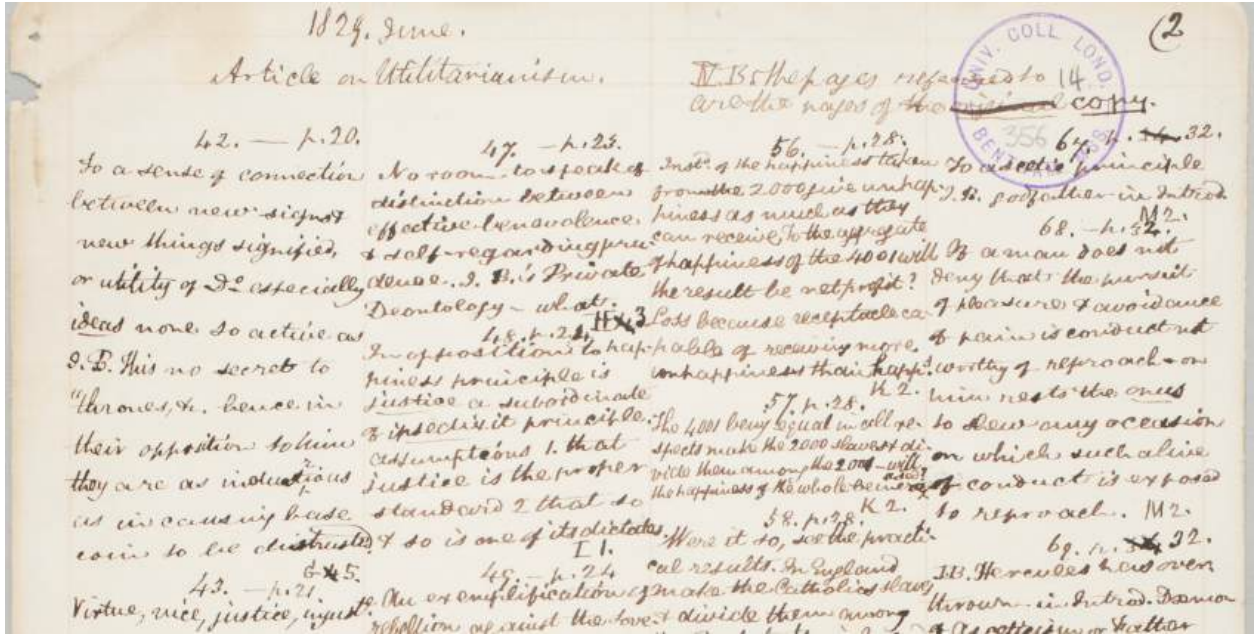 1829. June.
(2
Article on Utilitarianism.
N.B. the pages referred to
are the pages of the original copy.
UNIV. COLL. LOND.
BENTHAM MSS
14
356
42. — p.20.
To a sense of connection
between new signs &
new things signified,
or utility of Do especially
ideas none so active as
J.B. This no secret to
"thrones, &c. hence in
their opposition to him
they are as industrious
as in causing base
coin to be distrusted.
G 5.
43. — p.21
Virtue, vice, justice, injust
47. — p.23.
No room to speak of
distinction between
effective benevolence
& self-regarding pru-
dence. J.B.'s Private
Deontology — what.
H 3.
48. p.24.
In opposition to hap-
piness principle is
justice a subordinate
& ipsedixit principle.
assumptions 1. that
justice is the proper
standard 2 that so
& so is one of its dictates.
I 1.
49. — p.24
An exemplification of
rebellion against the
56. — p.28.
Inste. of the happiness taken
from the 2000 give unhap-
piness as much as they
can receive, to the aggregate
of happiness of the 4001 will
the result be net profit?
Loss because receptacle ca-
pable of receiving more
unhappiness than happs.
K 2.
57. p.28.
The 4001 being equal in all re-
spects make the 2000 slaves & di-
vide them among the 2001 — will
the happiness of the whole be increased?
K 2.
58. p.28.
Were it so, see the practi-
cal results. In England
make the Catholics slaves
& divide them among
67. p. 32.
To ascetic principle
J.B. godfather in Introd.
M2.
68. — p.32.
If a man does not
deny that the pursuit
of pleasure & avoidance
of pain is conduct not
worthy of reproach — on
him rests the onus
to shew any occasion
on which such a line
of conduct is exposed
to reproach. M2.
69. p. 32.
J.B. Hercules has over
thrown in Introd. Dæmon
of Asceticism or